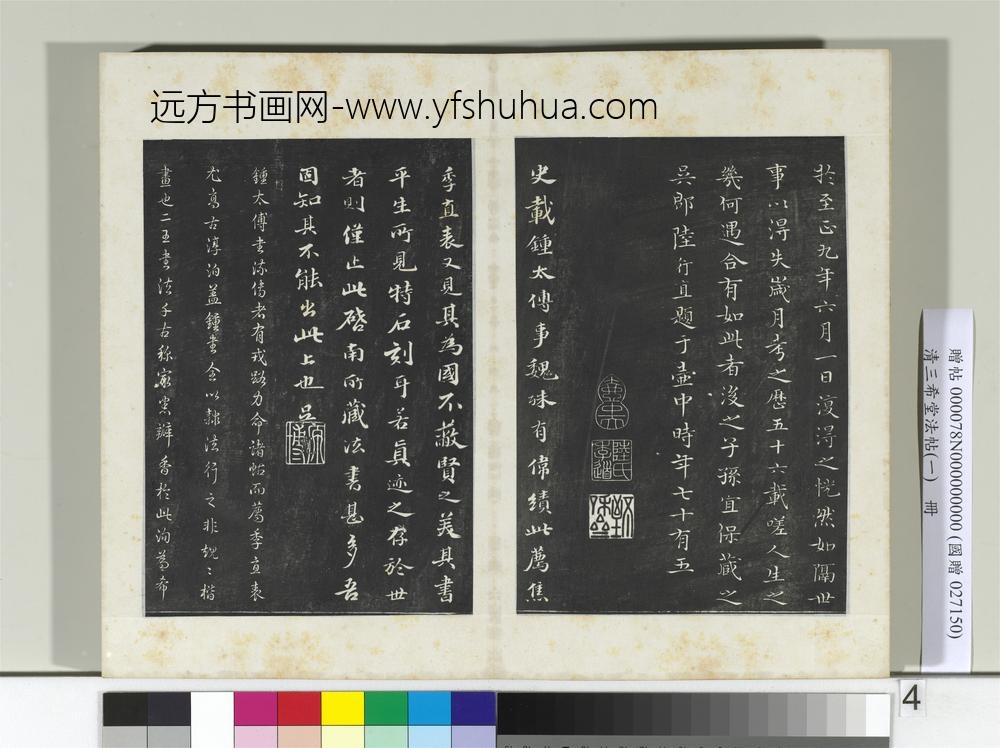 远方书画网-www.yfshuhua.com
於至正九年六月一日復得之恍然如隔世
事以得失歲月考之歷五十六載嗟人生之
幾何遇合有如此者後之子孫宜保藏之
吳郡陸行直題于壺中時年七十有五
陸氏季道
史載鍾太傅事魏殊有偉績此薦焦
季直表又見其為國不蔽賢之美其書
平生所見特石刻耳若真迹之存於世
者則僅止此啓南所藏法書甚多吾
固知其不能出此上也吳
鍾太傅書流傳者有戎路力命諸帖而薦季直表
尤高古淳泊蓋鍾書全以隸法行之非規規楷
畫也二王書法千古稱
贈帖 000078N000000000 (國贈 027150)
清三希堂法帖(一) 冊
4